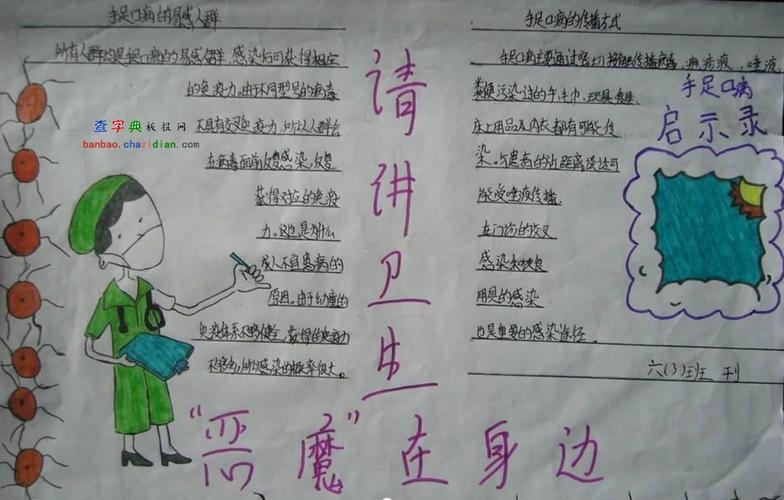 手足口病的易感人群
所有人群均是手足口病的易感人群 感染后可获得相应
的免疫力。由于不同型号的病毒
不具有交叉免疫力，所以人群会
在病毒面前反复感染，反复
获得对应的免疫
力。这也是为什么
成人不宜患病的
原因。由于幼童的
免疫体系不够健全，获得的免疫力
不够多，所以感染的概率很大。
查字典板报网
banbao.chazidian.com
请讲卫生
手足口病的传播方式
手足口病主要通过密切接触传播病毒，疱疹液，唾液
粪便污染过的手、毛巾、玩具
床上用品及内衣都有可能传
染。与患病的近距离谈话可
能受唾液传播，
在门诊的交叉
感染和饮食
用具的感染
也是重要的感染途径。
六(3)班 刊
手足口病
启示录
“恶魔”在身边